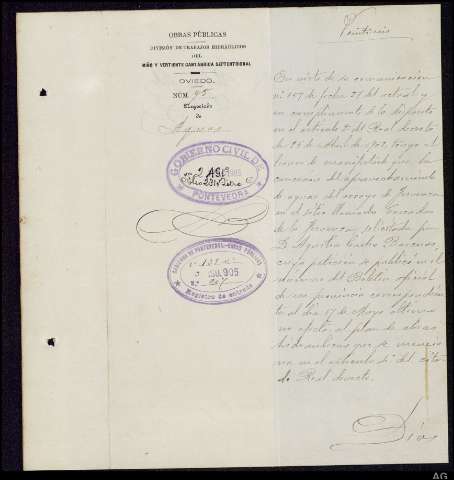 OBRAS PÚBLICAS
DIVISIÓN DE TRABAJOS HIDRÁULICOS
DEL
MIÑO Y VERTIENTE CANTÁBRICA SEPTENTRIONAL
OVIEDO
NÚM. 95
Negociado
de
Aguas
GOBIERNO CIVIL DE
2 AGO 905
PONTEVEDRA
AGO. 905
Nº 207
Registro de entrada
En vista de su comunicación
nº 167 de fecha 27 del actual y
en cumplimiento de lo dispuesto
en el artículo 2º del Real decreto
de 25 de Abril de 1902, tengo el
honor de manifestarle que la
concesión del aprovechamiento
de aguas del arroyo de
en el sitio llamado
de la solicitada por
D. Agustín Castro
cuya petición se publicó en el
número del Boletín oficial
de esa provincia correspondien-
te al día 17 de Mayo último
no afecta al plan de obras
hidráulicas que se mencio-
na en el artículo 1º del cita-
do Real decreto.
Dios
AG